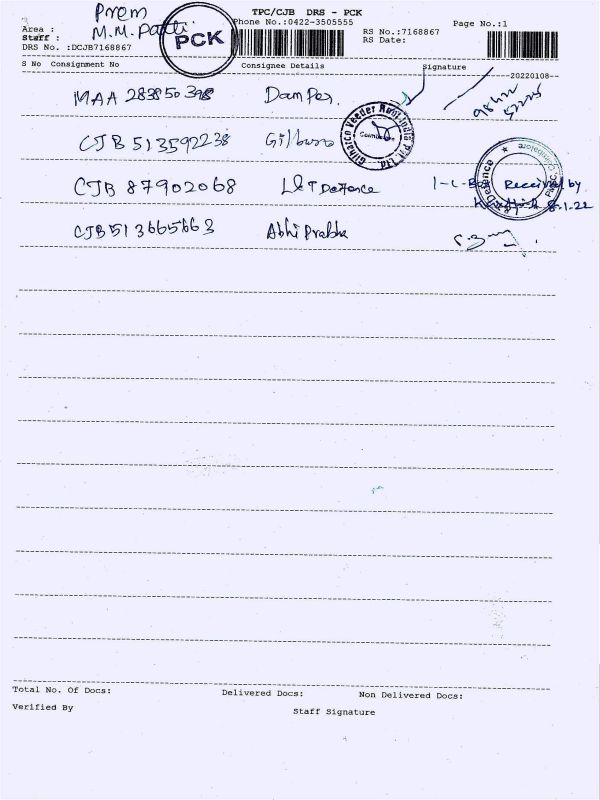 Prem
TPC/CJB DRS - PCK
Area :
Phone No.:0422-3505555
Page No.:1
Staff : M.M. Patti
PCK
RS No.:7168867
DRS No. :DCJB7168867
RS Date:
S No Consignment No Consignee Details Signature
20220108
MAA 283850398 Damper.
CJB 513592238
Gilbarco Veeder Root India Pvt. Ltd.
Coimbatore
CJB 87902068 L&T Defence 1-L-Box Received by
8-1-22
CJB513665663 Abhi Prabha
Total No. Of Docs: Delivered Docs: Non Delivered Docs:
Verified By Staff Signature